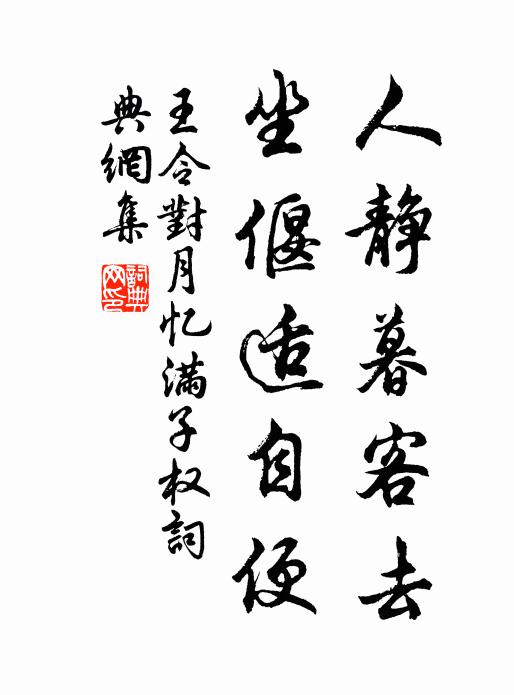 人静暮客去
坐偃适自便
王令對月忆满子权詞
典網集
詞典网印